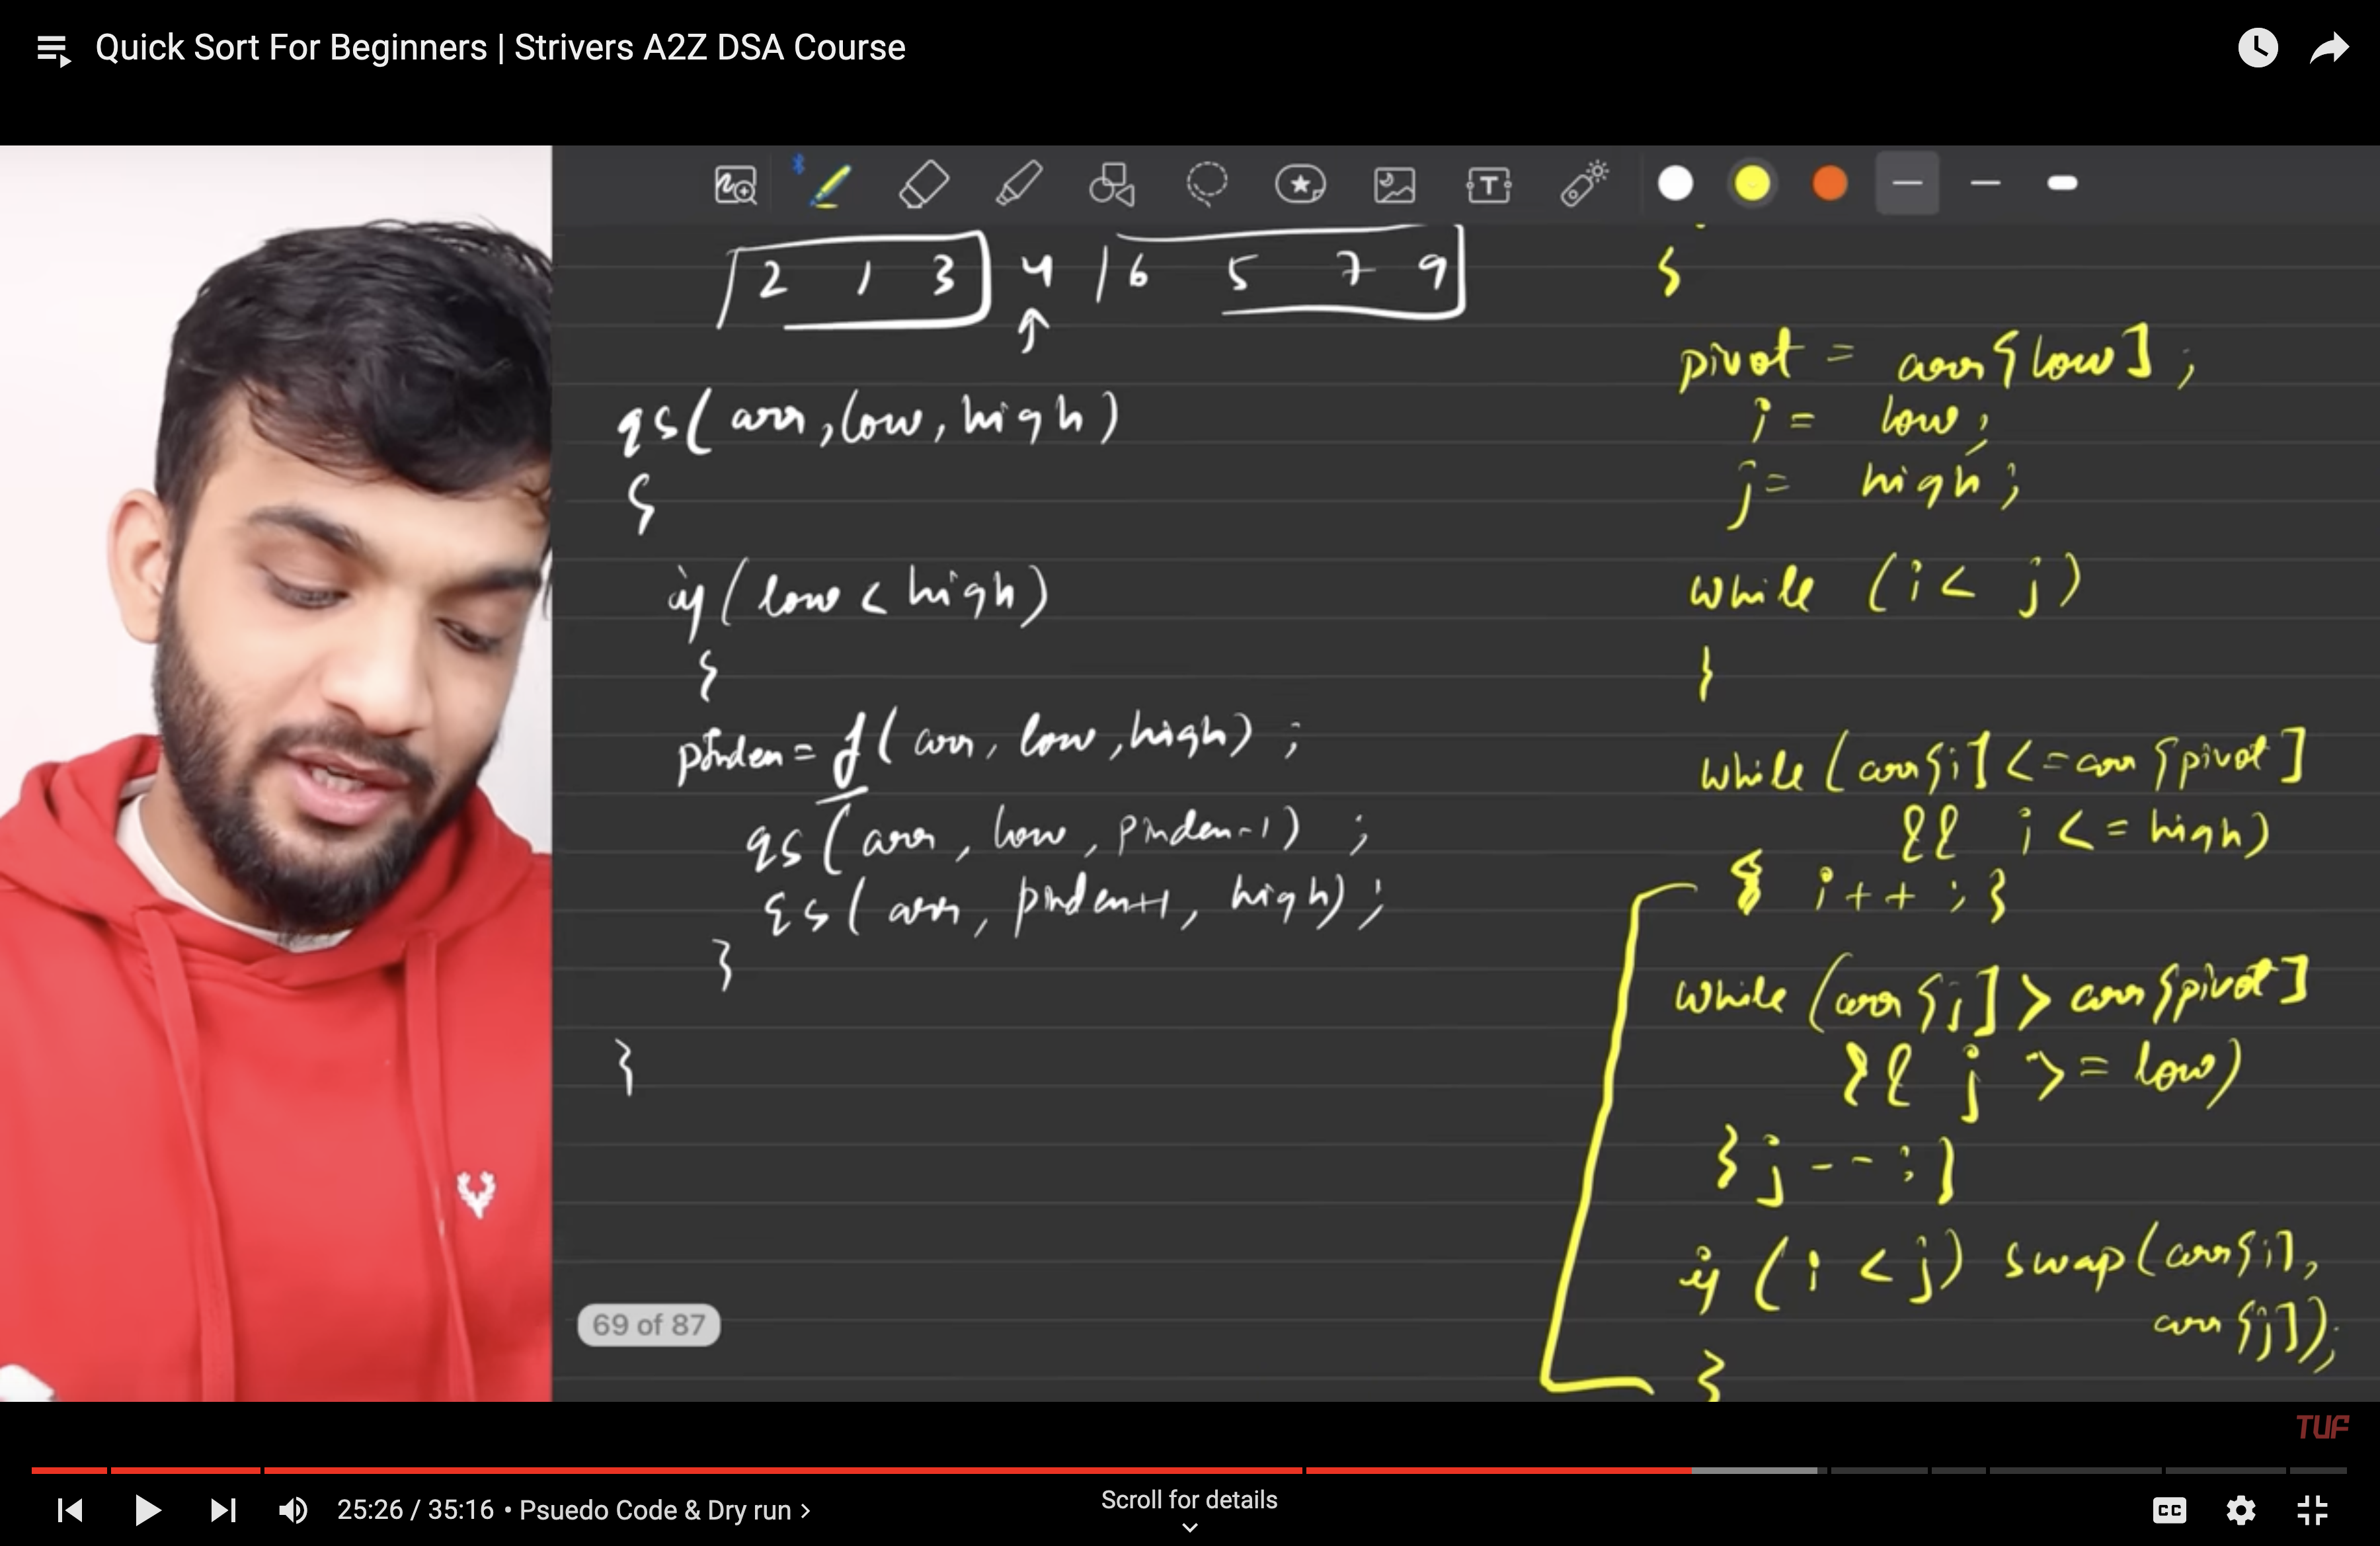 Quick Sort For Beginners | Strivers A2Z DSA Course
2 1 3 4 6 5 7 9
qs(arr, low, high)
{
if (low < high)
{
pIndex = f(arr, low, high);
qs(arr, low, pIndex-1);
qs(arr, pIndex+1, high);
}
}
{
pivot = arr[low];
i = low;
j = high;
while (i < j)
{
while (arr[i] <= arr[pivot]
&& i <= high)
{ i++; }
while (arr[j] > arr[pivot]
&& j >= low)
{ j--; }
if (i < j) swap(arr[i],
arr[j]);
}
69 of 87
TUF
25:26 / 35:16 • Psuedo Code & Dry run >
Scroll for details
CC